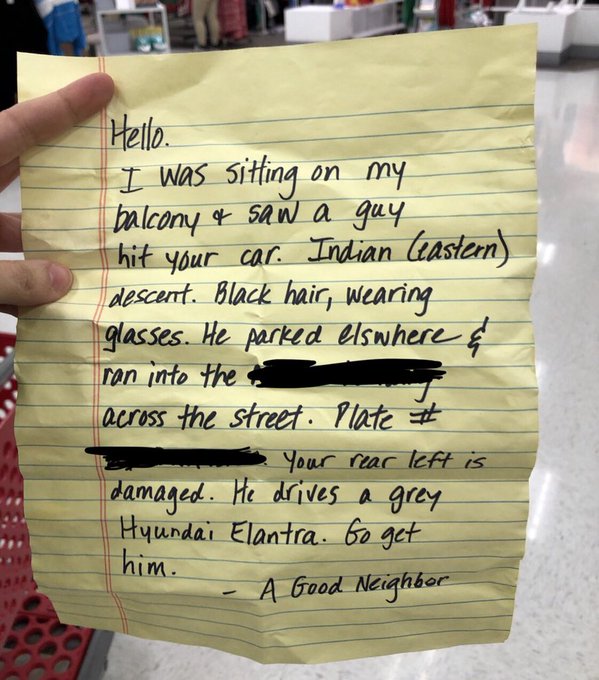 Hello.
I was sitting on my
balcony & saw a guy
hit your car. Indian (eastern)
descent. Black hair, wearing
glasses. He parked elswhere &
ran into the
across the street. Plate #
Your rear left is
damaged. He drives a grey
Hyundai Elantra. Go get
him.
- A Good Neighbor